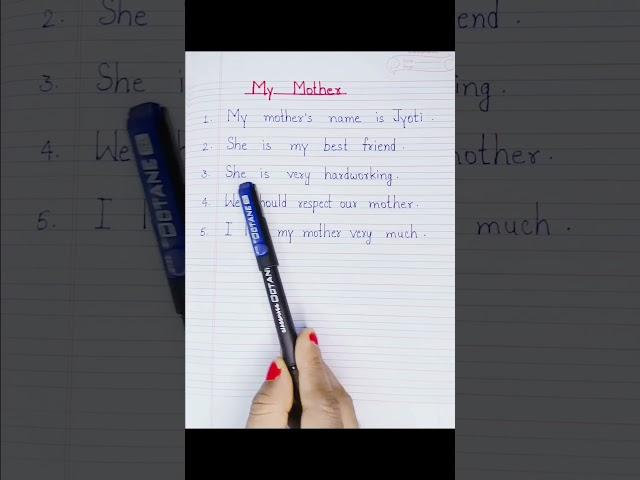 My Mother
1. My mother's name is Jyoti.
2. She is my best friend.
3. She is very hardworking.
4. We should respect our mother.
5. I my mother very much.
OCTANE
OCTANE